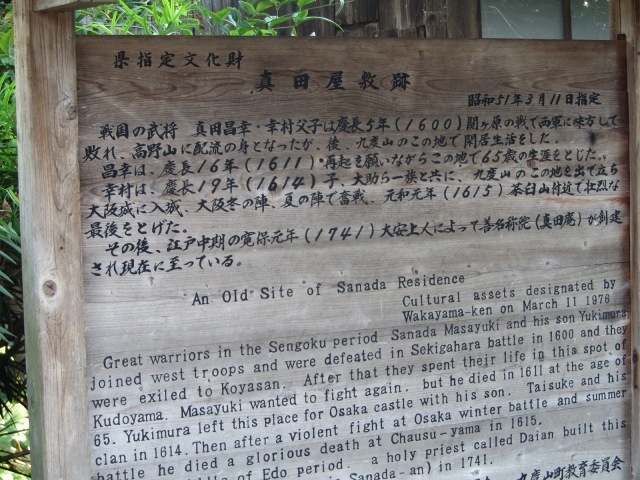 県指定文化財
真田屋敷跡
昭和51年3月11日指定
戦国の武将 真田昌幸・幸村父子は慶長5年(1600)関ヶ原の戦で西軍に味方して
敗れ、高野山に配流の身となったが、後、九度山のこの地で閑居生活をした。
昌幸は、慶長16年(1611)・再起を願いながらこの地で65歳の生涯をとじた。
幸村は、慶長19年(1614)子、大助ら一族と共に、九度山のこの地を出て立ち
大阪城に入城、大阪冬の陣、夏の陣で奮戦、元和元年(1615)茶臼山付近で壮烈な
最後をとげた。
その後、江戸中期の寛保元年(1741)大安上人によって善名称院(真田庵)が創建
され現在に至っている。
An Old Site of Sanada Residence
Cultural assets designated by
Wakayama-ken on March 11 1976
Great warriors in the Sengoku period Sanada Masayuki and his son Yukimura
joined west troops and were defeated in Sekigahara battle in 1600 and they
were exiled to Koyasan. After that they spent their life in this spot of
Kudoyama. Masayuki wanted to fight again, but he died in 1611 at the age of
65. Yukimura left this place for Osaka castle with his son, Taisuke and his
clan in 1614. Then after a violent fight at Osaka winter battle and summer
battle he died a glorious death at Chausu-yama in 1615.
middle of Edo period, a holy priest called Daian built this
Sanada-an) in 1741.
九度山町教育委員会